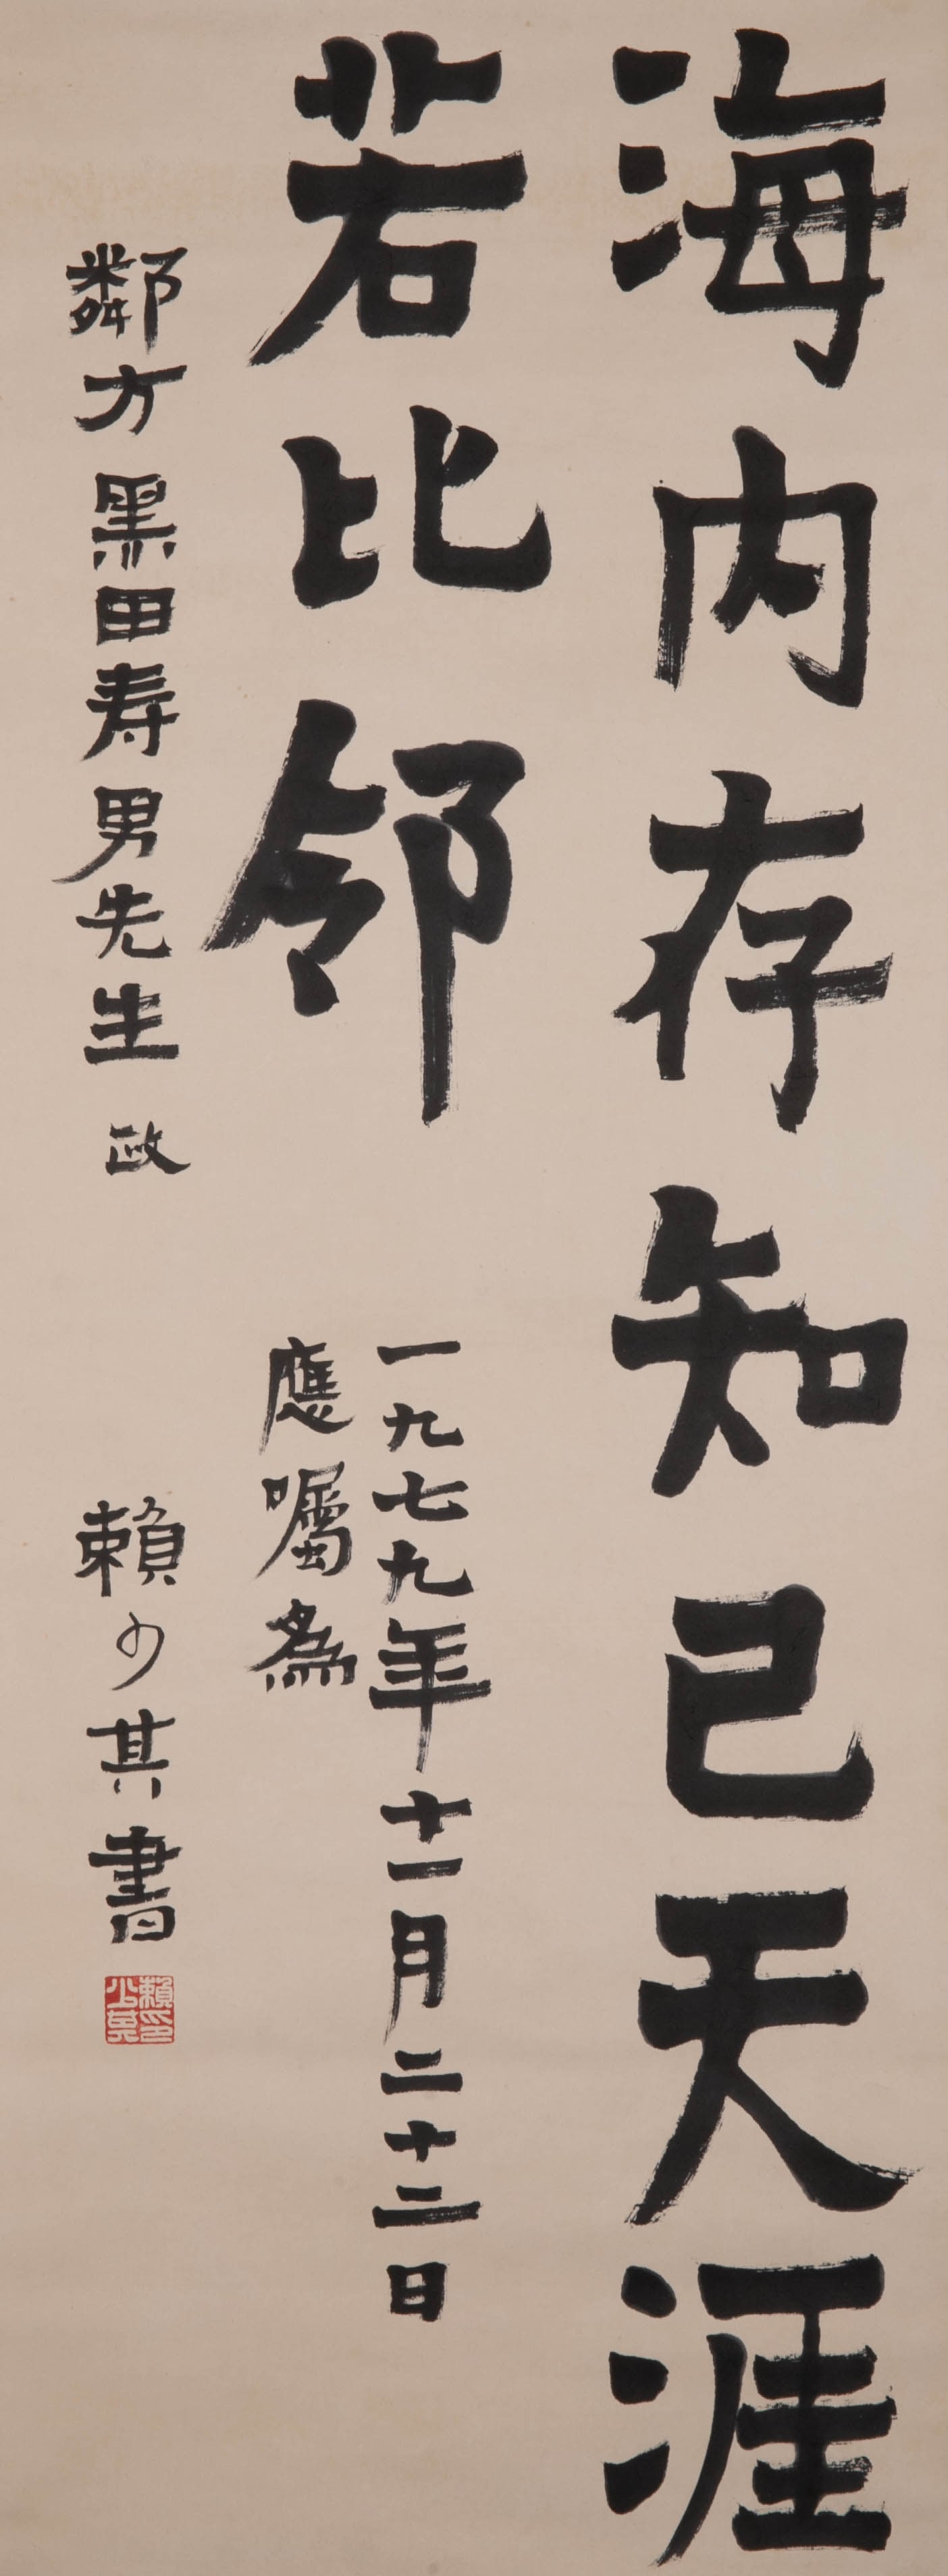 海内存知已天涯
若比邻
一九七九年十一月二十二日
應囑為
鄰方黑田寿男先生政
賴少其書
賴少其印